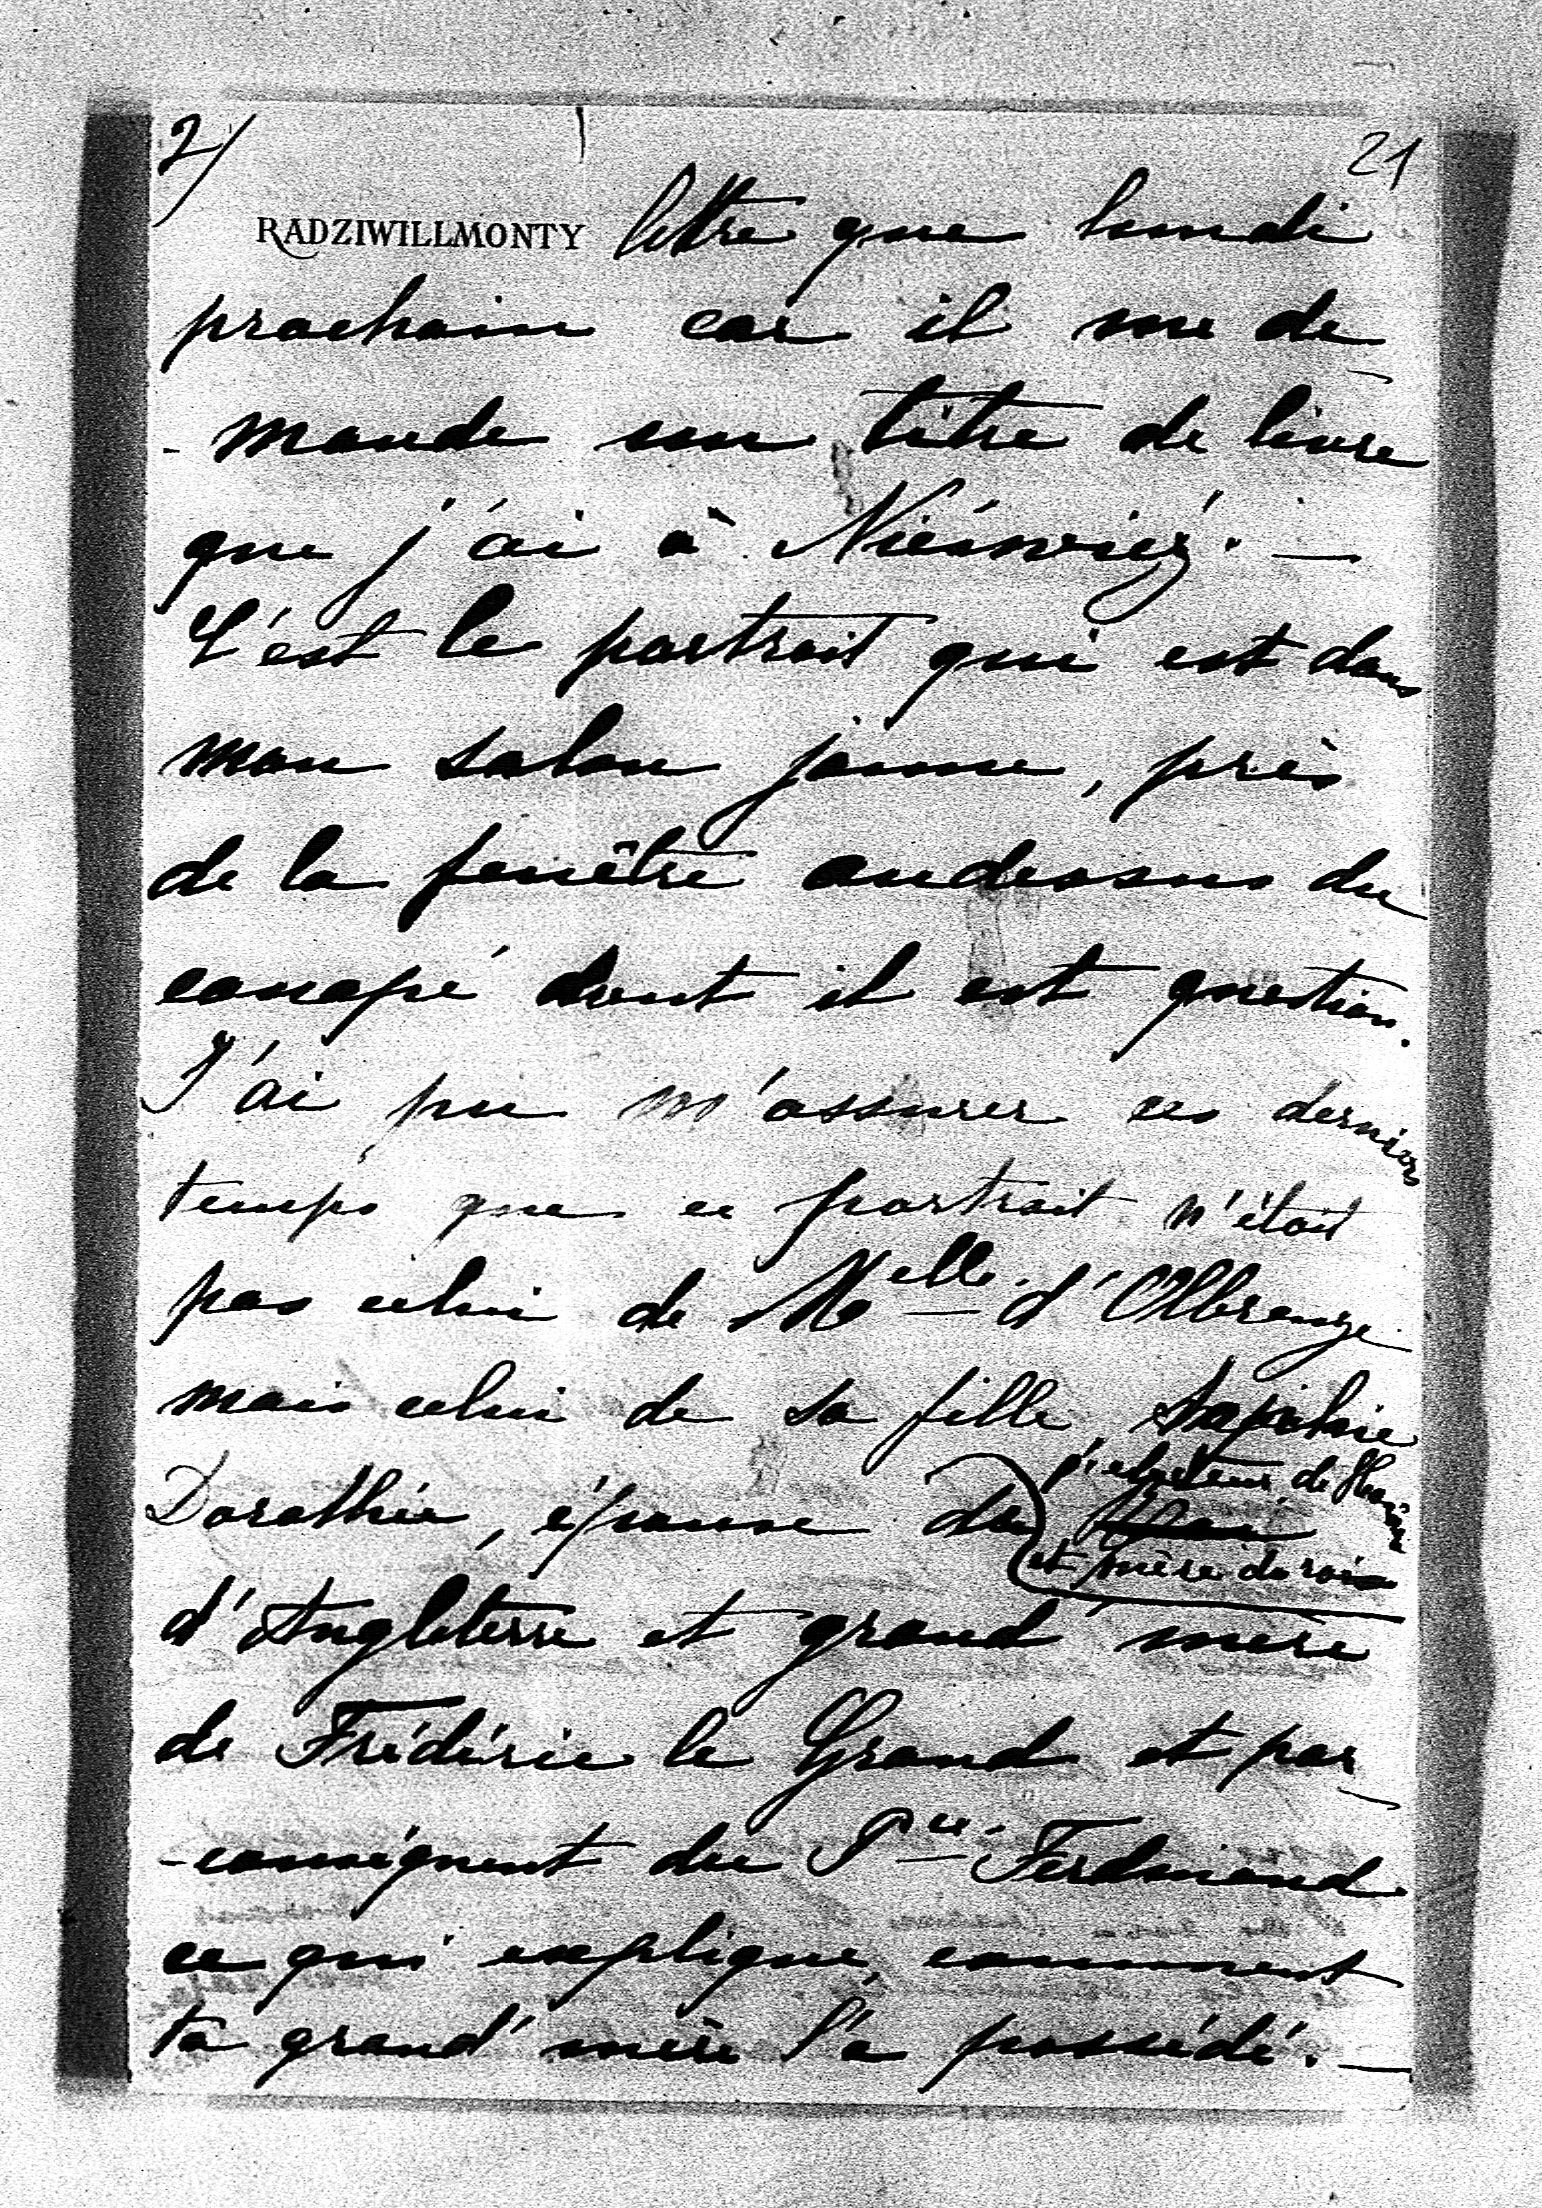 2/
21
RADZIWILLMONTY lettre que lundi
prochain car il me de
- mande un titre de livre
que j'ai à Nieśwież. —
C'est le portrait qui est dans
mon salon jaune, près
de la fenêtre audessus du
canapé dont il est question.
J'ai pu m'assurer ces derniers
temps que ce portrait n'était
pas celui de Melle. d'Olbreuze
mais celui de sa fille, Sophie
Dorothée, épouse de
l'électeur de Hanovre
et mère du roi
d'Angleterre et grand'mère
de Frédéric le Grand et par
- conséquent du Pce. Ferdinand
ce qui explique, comment
ta grand'mère l'a possédé. —